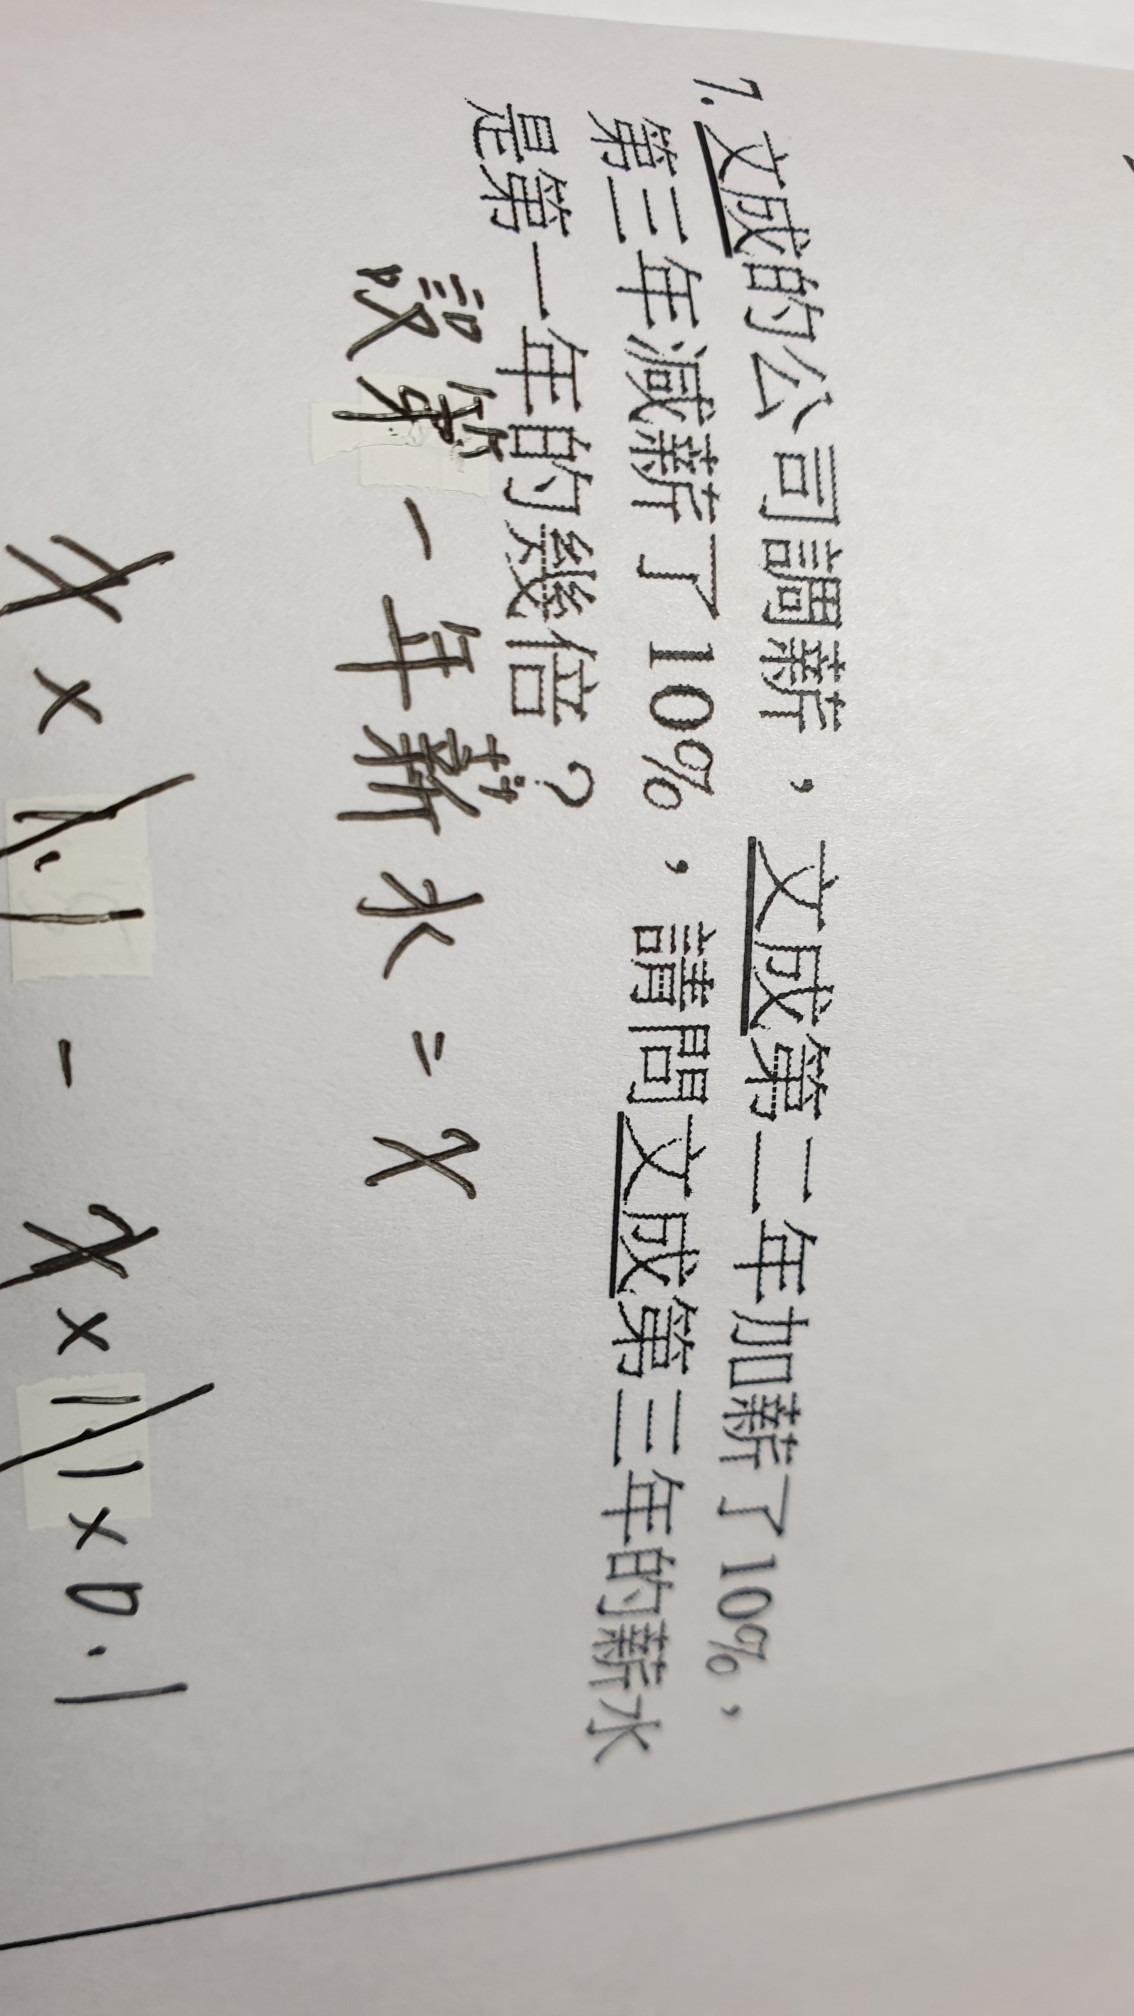 7. 文成的公司調薪，文成第二年加薪了10%，
第三年減薪了10%，請問文成第三年的薪水
是第一年的幾倍？
設第一年薪水=x
x×1.1-x×1.1×0.1